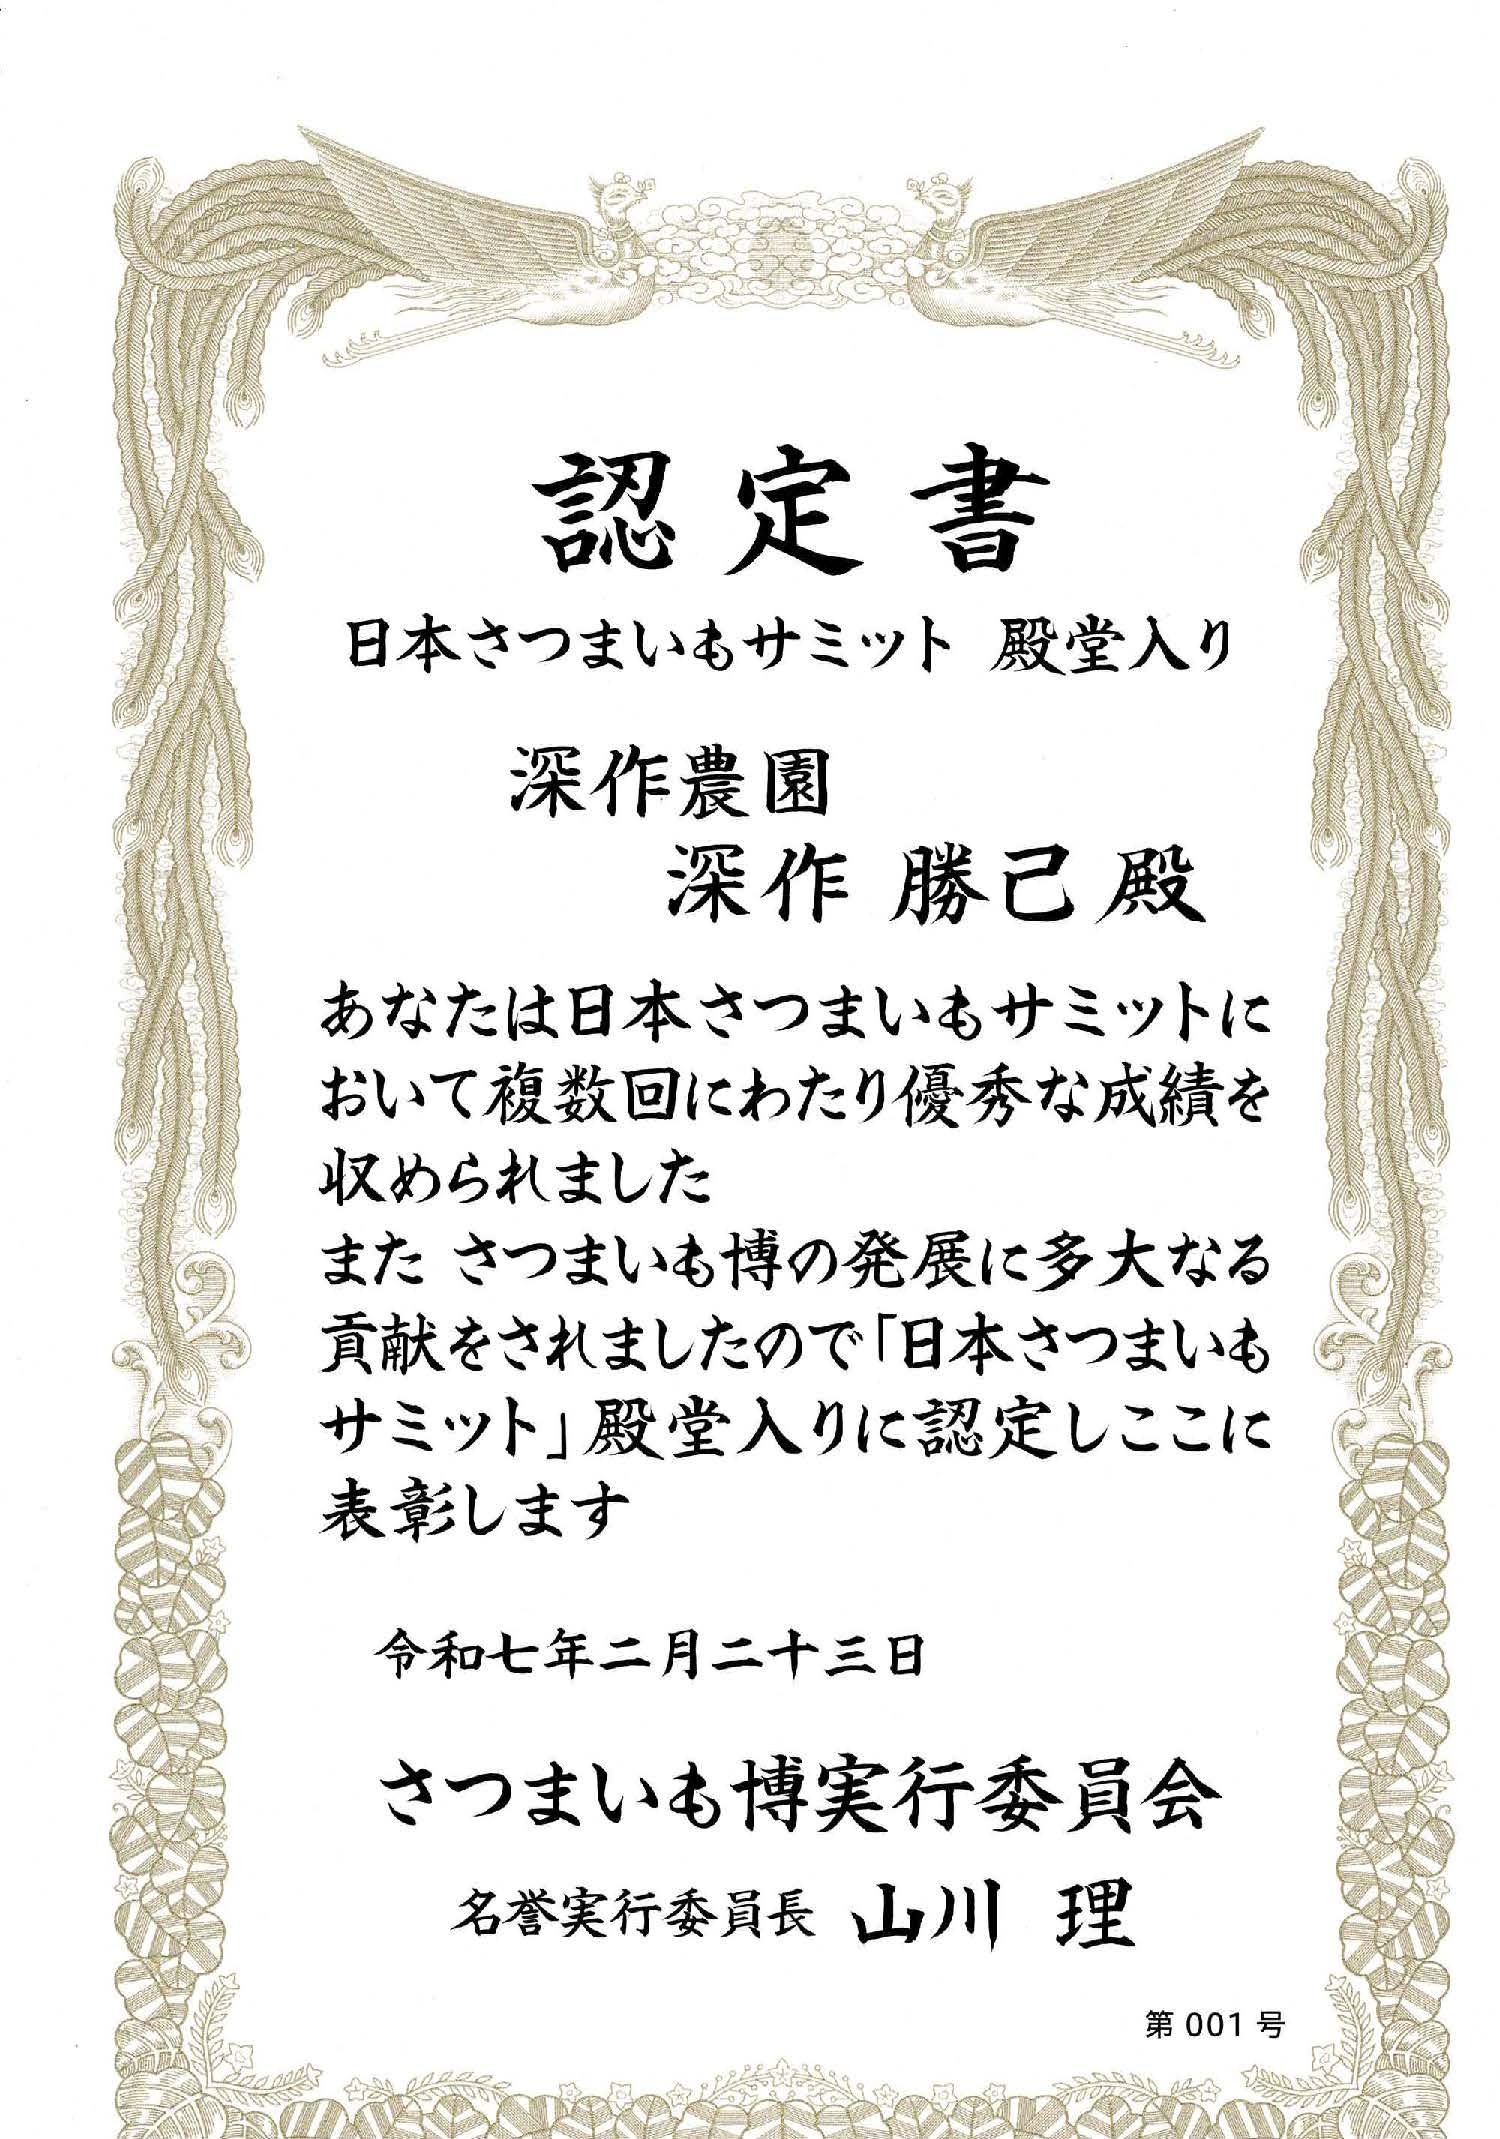 認定書
日本さつまいもサミット 殿堂入り
深作農園
深作 勝己 殿
あなたは日本さつまいもサミットに
おいて複数回にわたり優秀な成績を
収められました
また さつまいも博の発展に多大なる
貢献をされましたので「日本さつまいも
サミット」殿堂入りに認定しここに
表彰します
令和七年二月二十三日
さつまいも博実行委員会
名誉実行委員長 山川 理
第 001 号